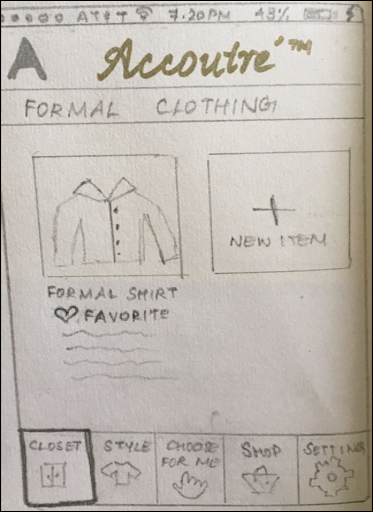 AT&T 7.20PM 48%
A Accoutré™
FORMAL CLOTHING
NEW ITEM
FORMAL SHIRT
FAVORITE
CLOSET STYLE CHOOSE FOR ME SHOP SETTINGS